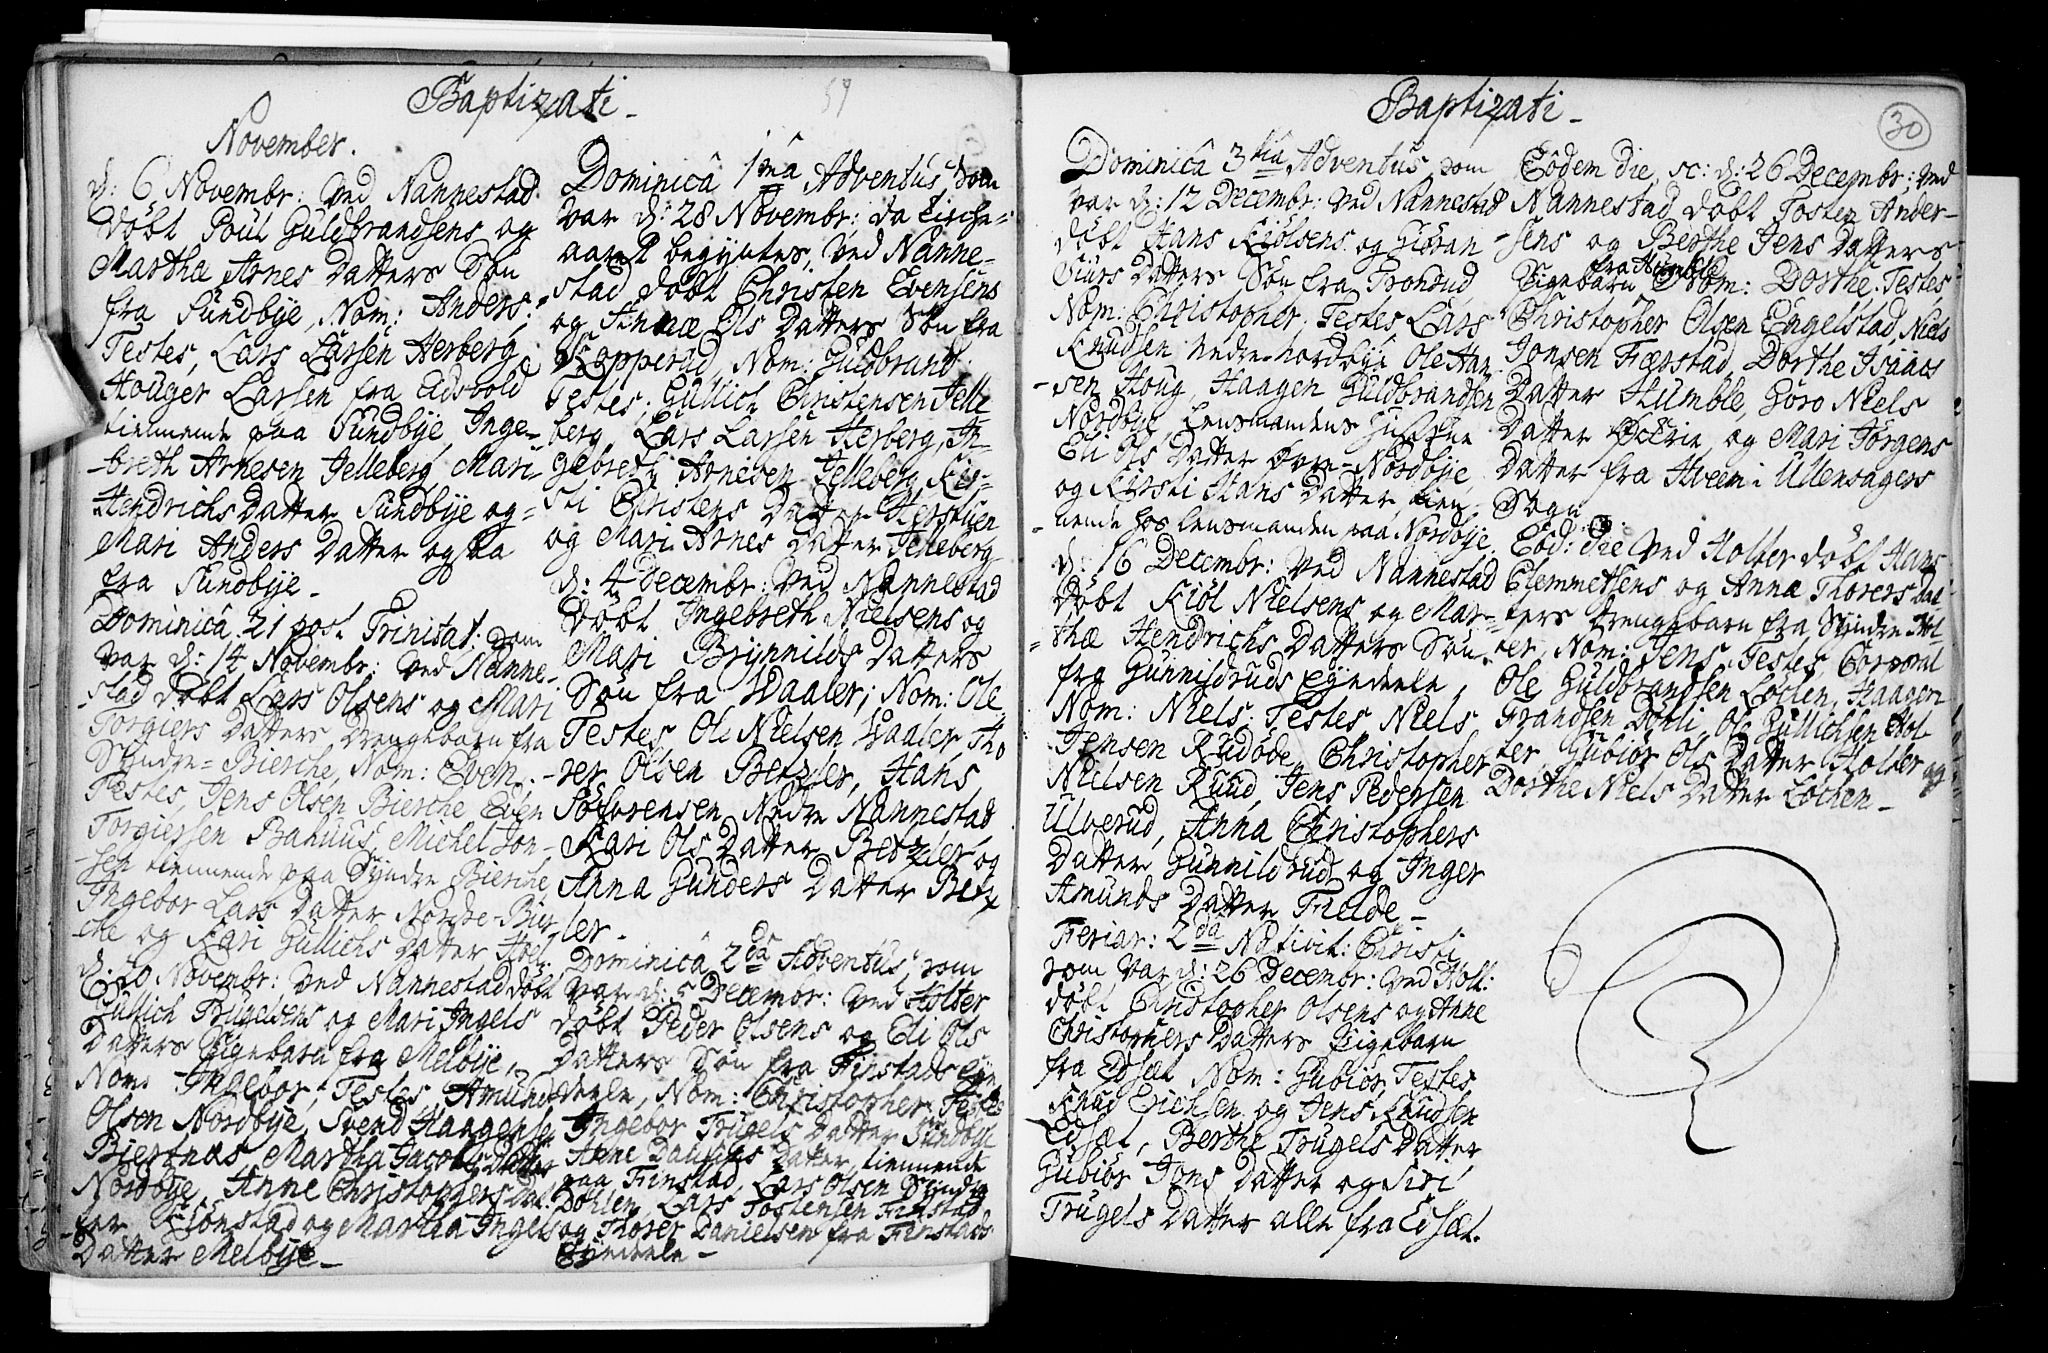 Baptizati
59
November.
d: 6 Novembr: ved Nannestad
döbt Poul Guldbrandsens og
Marthæ Arnes Datters Søn
fra Sundbÿe, Nom: Anders.
Testes, Lars Larsen Herberg,
Houger Larsen fra Eidsvold
tiennende paa Sundbÿe Inge-
breth Arnesen Jelleberg, Mari
Hendrichs Datter Sundbÿe og
Mari Anders Datter ogsaa
fra Sundbÿe.
Dominicâ 21 post Trinitat: som
var d: 14 Novembr: ved Nanne-
stad döbt Lars Olsens og Mari
Torgiers Datters Drengebarn fra
Syndre-Bierche, Nom: Even.
Testes, Jens Olsen Bierche Even
Torgiersen Bahuus, Michel Jon-
sen tiennende paa Syndre Bierche
Ingebor Lars Datter Nordre-Bier-
che og Kari Gullichs Datter Hoel.
d: 20 Novembr: ved Nannestad döbt
Gullich Trugelsens og Mari Ingels
Datters Pigebarn fra Melbÿe,
Nom: Ingebor, Testes, Amund
Olsen Nordbÿe, Svend Haagensen
Biertnæs Martha Jacobs Datter
Nordbÿe, Anne Christophers Dat-
ter Kiönstad og Martha Ingels
Datter Melbÿe
Dominicâ 1mâ Adventus, som
var d: 28 Novembr: da Kirche-
aaret begyntes, ved Nanne-
stad döbt Christen Evensens
og Annæ Ols Datters Søn fra
Kopperud, Nom: Guldbrand.
Testes, Gullich Christensen Jelle
berg, Lars Larsen Herberg, In-
gebreth Arnesen Jelleberg, Kir-
sti Christens Datter
og Mari Arnes Datter Jelleberg
d: 4 Decembr: ved Nannestad
döbt Ingebreth Nielsens og
Mari Brynnilds Datters
Søn fra Waaler, Nom: Ole
Testes Ole Nielsen Waaler, Tho
rer Olsen Betzler, Hans
Sølfvrensen Nedre Nannestad
Kari Ols Datter Betzler og
Anna Gunders Datter Betz
ler
Dominicâ 2dâ Adventus, som
var d: 5 Decembr: ved Holter
döbt Peder Olsens og Eli Ols
Datters Søn fra Finstads Eÿe
deele, Nom: Christopher. Testes
Ingebor Trugels Datter Sundbÿe
Anne Daniels Datter tiennende
paa Finstad, Lars Olsen
Döhlen, Lars Tostensen Finstad
og Thorer Danielsen fra Finstads
Eÿedeele
Baptizati
30
Dominicâ 3tiâ Adventus som
var d: 12 Decembr: ved Nannestad
döbt Hans Kiölsens og Giöran
Siurs Datters Søn fra Tronrud
Nom: Christopher, Testes Lars
Knudsen nedre-nordbÿe Ole Han
sen Houg, Haagen Guldbrandsen
Nordbÿe Lensmandens Hustrue
Eli Ols Datter övre-Nordbÿe,
og Kirsti Hans Datter tien-
nende hos Lensmanden paa Nordbÿe.
d: 16 Decembr: ved Nannestad
döbt Kiöl Nielsens og Mar-
thæ Hendrichs Datters Søn
fra Gunnildruds Eÿedeele,
Nom: Niels. Testes Niels
Jensen Rudöde, Christopher
Nielsen Ruud, Jens Pedersen
Ulverud, Anna Christophers
Datter Gunnildrud og Inger
Amunds Datter Fielde
Feriar: 2dâ Nativit: Christi
som var d: 26 Decembr: ved Holt:
döbt Christopher Olsens og Anne
Christophers Datters Pigebarn
fra Edsæt Nom: Gubiör, Testes
Knud Erichsen og Jens Knudsen
Edsæt, Berthe Trugels Datter
Gubiör Jens Datter og Siri
Trugels Datter alle fra Edsæt.
Eödem die, sc: d: 26 Decembr: ved
Nannestad döbt Tosten Ander-
sens og Berthe Jens Datters
fra Humble
Pigebarn Nom: Dorthe. Testes,
Christopher Olsen Engelstad, Niels
Jonsen Færstad, Dorthe Isaacs
Datter Humble, Goro Niels
Datter og Mari Jörgens
Datter fra Hveem i Ullensagers
Sogn
Eod: die ved Holter döbt Hans
Clemmetsens og Anna Thorers Dat-
ters Drengebarn fra Syndre Hol
ter, Nom: Jens. Testes, Corporal
Ole Guldbrandsen Löchen, Haagen
Frandsen Döhli, Ole Gullichsen Hol-
ter, Gubiör Ols Datter Holter og
Dorthe Niels Datter Löchen